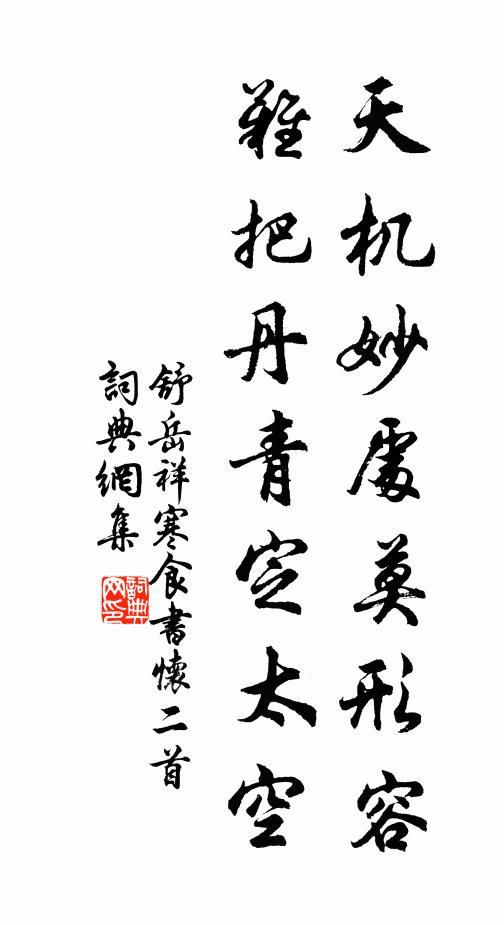 天机妙處莫形容
難把丹青定太空
舒岳祥寒食書懷二首
詞典網集
詞典網印